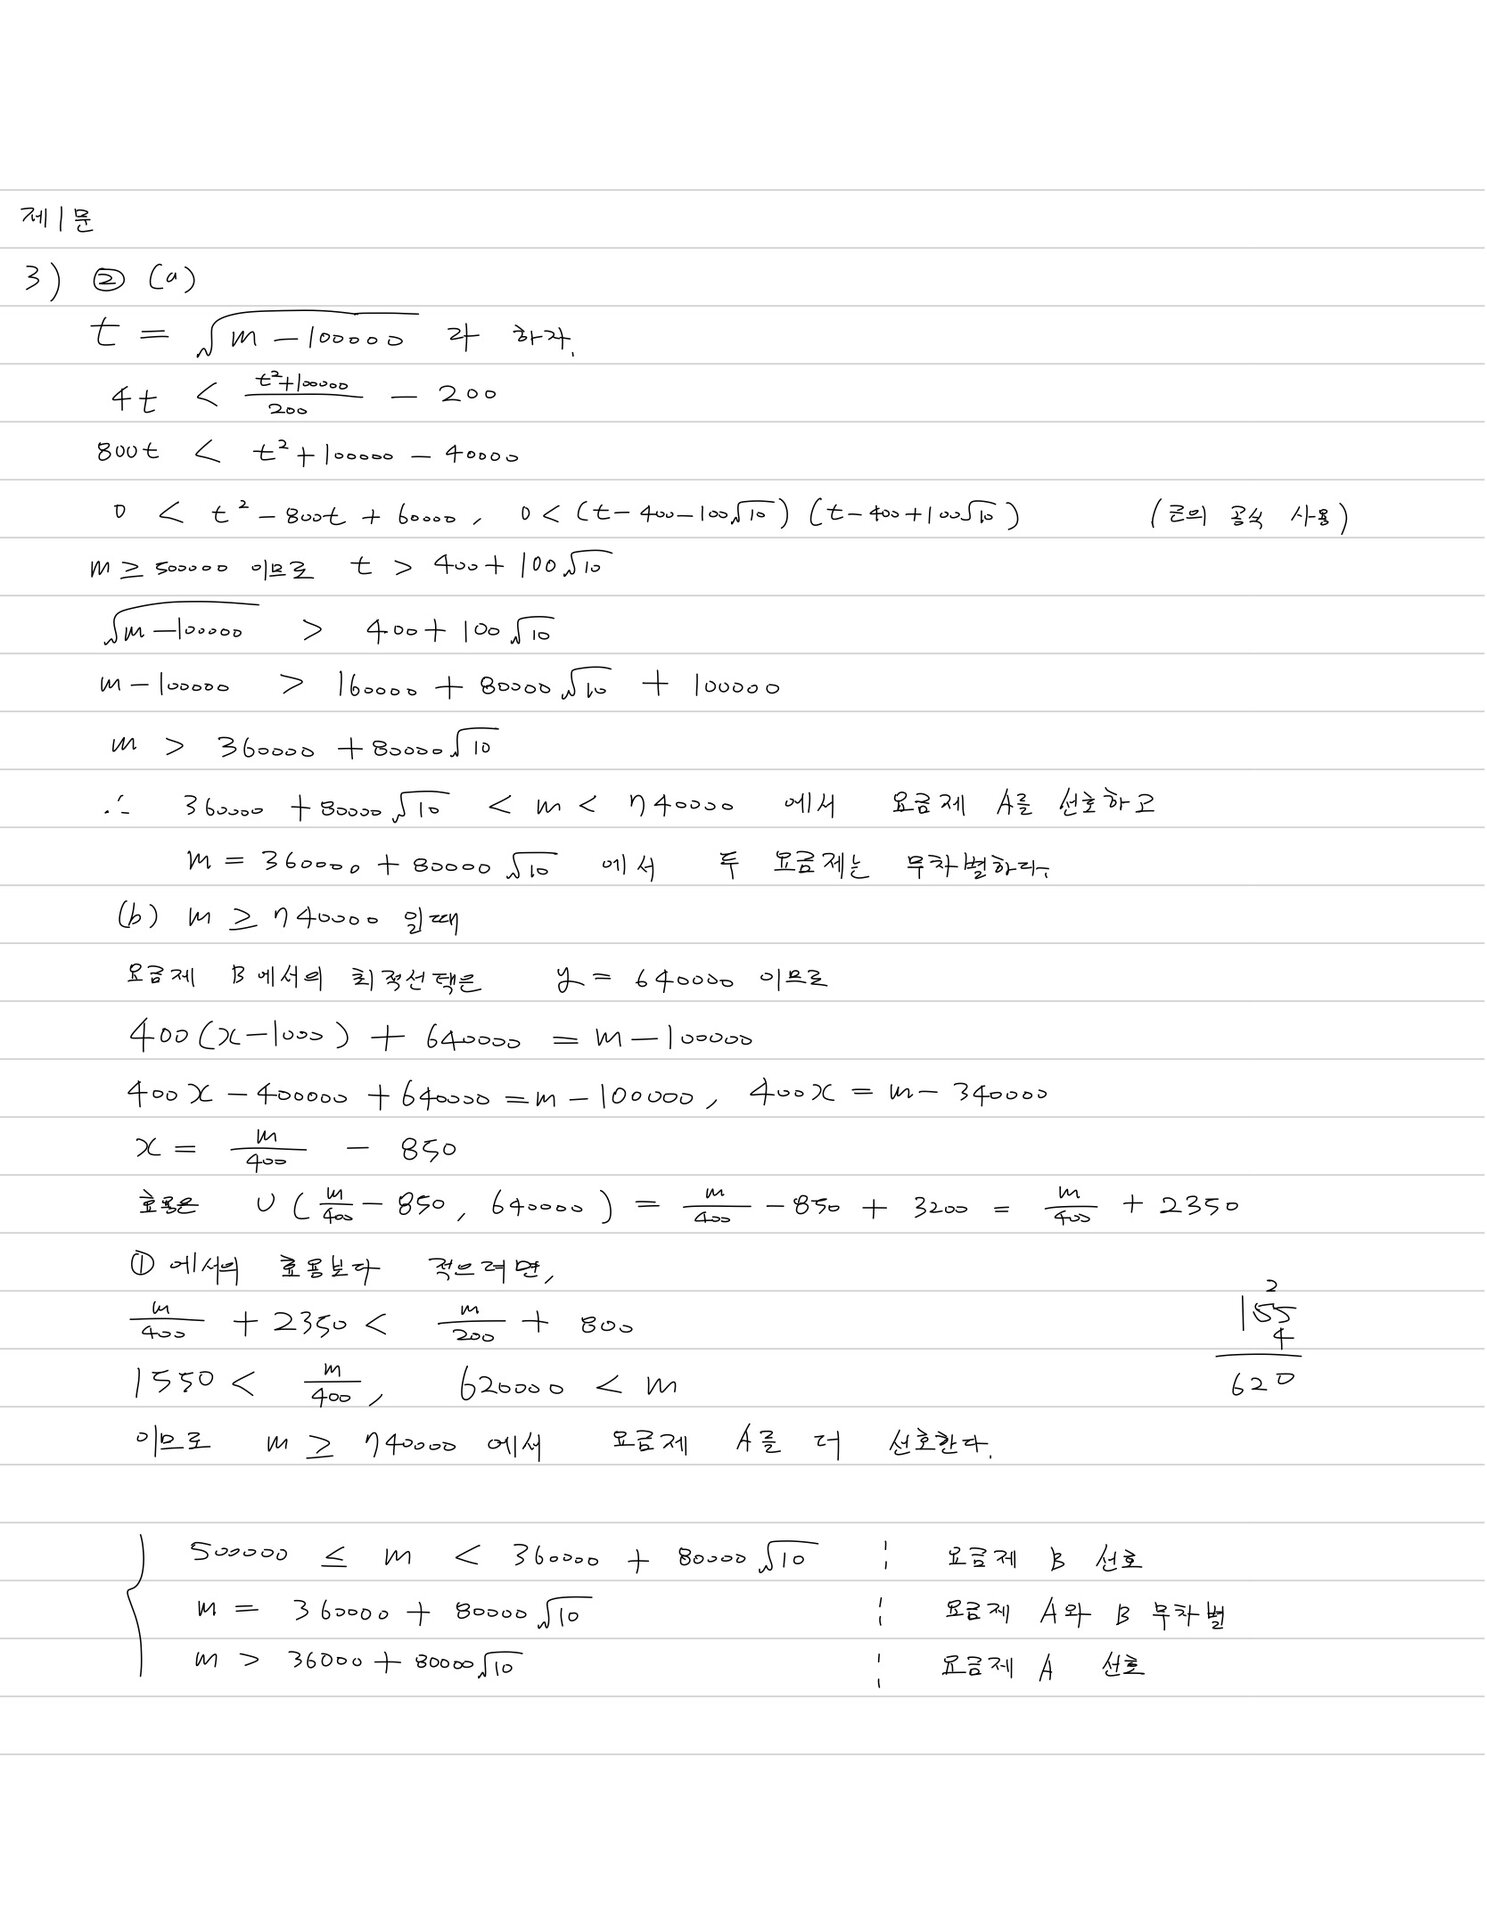 제1문
3) ② (a)
t = √(m-100000) 라 하자.
4t < (t²+100000)/200 - 200
800t < t²+100000-40000
0 < t²-800t+60000, 0<(t-400-100√10)(t-400+100√10) (근의 공식 사용)
m ≥ 500000 이므로 t > 400+100√10
√(m-100000) > 400+100√10
m-100000 > 160000+80000√10+100000
m > 360000+80000√10
∴ 360000+80000√10 < m < 740000 에서 요금제 A를 선호하고
m = 360000+80000√10 에서 두 요금제는 무차별하다.
(b) m ≥ 740000 일때
요금제 B에서의 최적선택은 y = 640000 이므로
400(x-1000) + 640000 = m-100000
400x-400000+640000=m-100000, 400x = m-340000
x = m/400 - 850
효용은 U(m/400-850, 640000) = m/400-850+3200 = m/400+2350
① 에서의 효용보다 적으려면,
m/400+2350 < m/200+800
2
155
4
620
1550 < m/400, 620000 < m
이므로 m ≥ 740000 에서 요금제 A를 더 선호한다.
500000 ≤ m < 360000+80000√10 : 요금제 B 선호
m = 360000+80000√10 : 요금제 A와 B 무차별
m > 36000+80000√10 : 요금제 A 선호